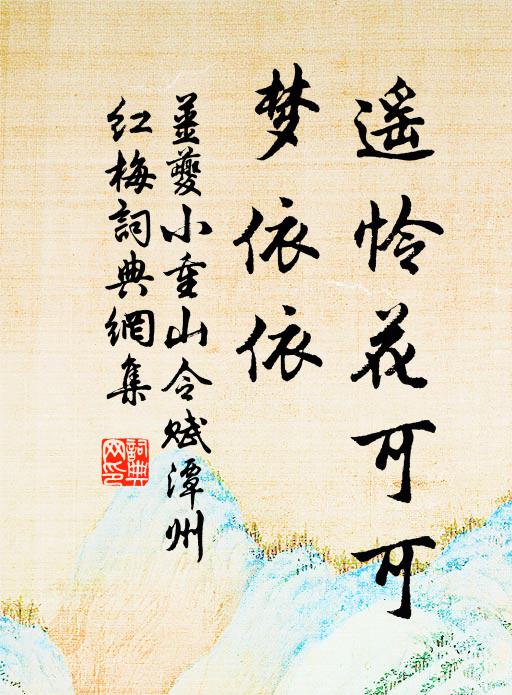 遥怜花可可
梦依依
姜夔小重山令赋潭州
红梅詞典網集
詞典
网印